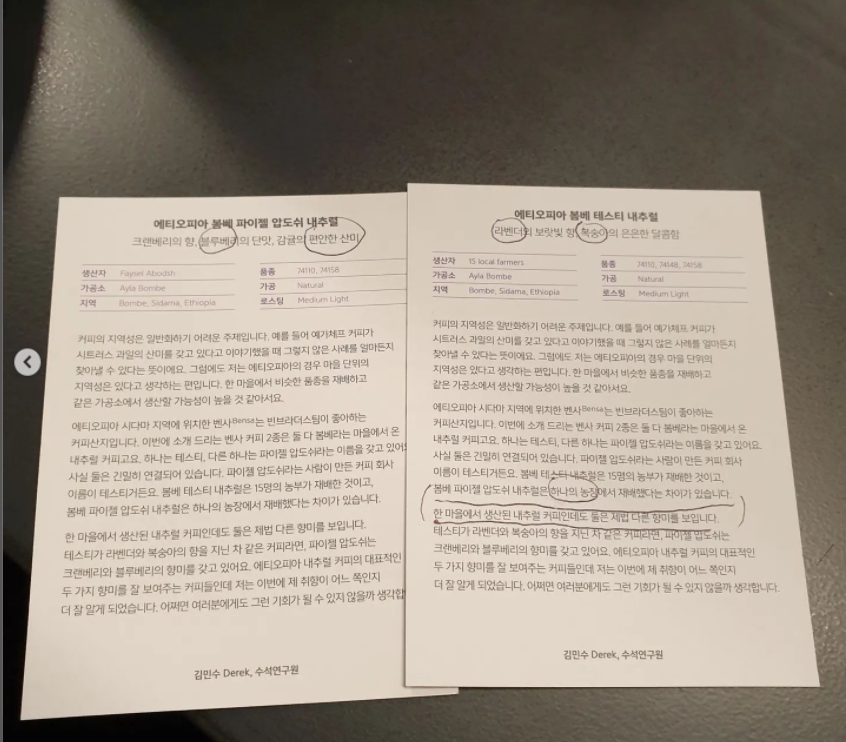 에티오피아 봄베 파이젤 압도쉬 내추럴
크랜베리의 향, 블루베리의 단맛, 감귤의 편안한 산미
생산자 Faysel Abodsh 품종 74110, 74158
가공소 Ayla Bombe 가공 Natural
지역 Bombe, Sidama, Ethiopia 로스팅 Medium Light
커피의 지역성은 일반화하기 어려운 주제입니다. 예를 들어 예가체프 커피가
시트러스 과일의 산미를 갖고 있다고 이야기했을 때 그렇지 않은 사례를 얼마든지
찾아낼 수 있다는 뜻이에요. 그럼에도 저는 에티오피아의 경우 마을 단위의
지역성은 있다고 생각하는 편입니다. 한 마을에서 비슷한 품종을 재배하고
같은 가공소에서 생산할 가능성이 높을 것 같아서요.
에티오피아 시다마 지역에 위치한 벤사Bensa는 빈브라더스팀이 좋아하는
커피산지입니다. 이번에 소개 드리는 벤사 커피 2종은 둘 다 봄베라는 마을에서 온
내추럴 커피고요. 하나는 테스티, 다른 하나는 파이젤 압도쉬라는 이름을 갖고 있어요
사실 둘은 긴밀히 연결되어 있습니다. 파이젤 압도쉬라는 사람이 만든 커피 회사
이름이 테스티거든요. 봄베 테스티 내추럴은 15명의 농부가 재배한 것이고,
봄베 파이젤 압도쉬 내추럴은 하나의 농장에서 재배했다는 차이가 있습니다.
한 마을에서 생산된 내추럴 커피인데도 둘은 제법 다른 향미를 보입니다.
테스티가 라벤더와 복숭아의 향을 지닌 차 같은 커피라면, 파이젤 압도쉬는
크랜베리와 블루베리의 향미를 갖고 있어요. 에티오피아 내추럴 커피의 대표적인
두 가지 향미를 잘 보여주는 커피들인데 저는 이번에 제 취향이 어느 쪽인지
더 잘 알게 되었습니다. 어쩌면 여러분에게도 그런 기회가 될 수 있지 않을까 생각합
김민수 Derek, 수석연구원
에티오피아 봄베 테스티 내추럴
라벤더의 보랏빛 향, 복숭아의 은은한 달콤함
생산자 15 local farmers 품종 74110, 74148, 74158
가공소 Ayla Bombe 가공 Natural
지역 Bombe, Sidama, Ethiopia 로스팅 Medium Light
커피의 지역성은 일반화하기 어려운 주제입니다. 예를 들어 예가체프 커피가
시트러스 과일의 산미를 갖고 있다고 이야기했을 때 그렇지 않은 사례를 얼마든지
찾아낼 수 있다는 뜻이에요. 그럼에도 저는 에티오피아의 경우 마을 단위의
지역성은 있다고 생각하는 편입니다. 한 마을에서 비슷한 품종을 재배하고
같은 가공소에서 생산할 가능성이 높을 것 같아서요.
에티오피아 시다마 지역에 위치한 벤사Bensa는 빈브라더스팀이 좋아하는
커피산지입니다. 이번에 소개 드리는 벤사 커피 2종은 둘 다 봄베라는 마을에서 온
내추럴 커피고요. 하나는 테스티, 다른 하나는 파이젤 압도쉬라는 이름을 갖고 있어요.
사실 둘은 긴밀히 연결되어 있습니다. 파이젤 압도쉬라는 사람이 만든 커피 회사
이름이 테스티거든요. 봄베 테스티 내추럴은 15명의 농부가 재배한 것이고,
봄베 파이젤 압도쉬 내추럴은 하나의 농장에서 재배했다는 차이가 있습니다.
한 마을에서 생산된 내추럴 커피인데도 둘은 제법 다른 향미를 보입니다.
테스티가 라벤더와 복숭아의 향을 지닌 차 같은 커피라면, 파이젤 압도쉬는
크랜베리와 블루베리의 향미를 갖고 있어요. 에티오피아 내추럴 커피의 대표적인
두 가지 향미를 잘 보여주는 커피들인데 저는 이번에 제 취향이 어느 쪽인지
더 잘 알게 되었습니다. 어쩌면 여러분에게도 그런 기회가 될 수 있지 않을까 생각합니다.
김민수 Derek, 수석연구원